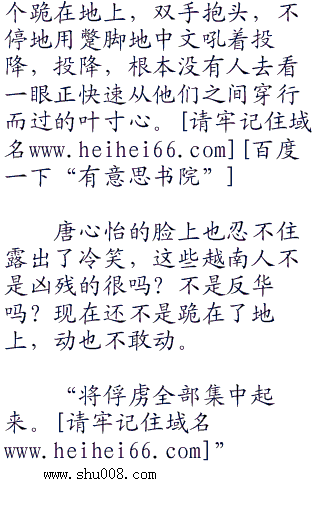 个跪在地上，双手抱头，不
停地用蹩脚地中文吼着投
降，投降，根本没有人去看
一眼正快速从他们之间穿行
而过的叶寸心。[请牢记住域
名www.heihei66.com][百度
一下“有意思书院”]
唐心怡的脸上也忍不住
露出了冷笑，这些越南人不
是凶残的很吗？不是反华
吗？现在还不是跪在了地
上，动也不敢动。
“将俘虏全部集中起
来。[请牢记住域名
www.heihei66.com]”
www.shu008.com